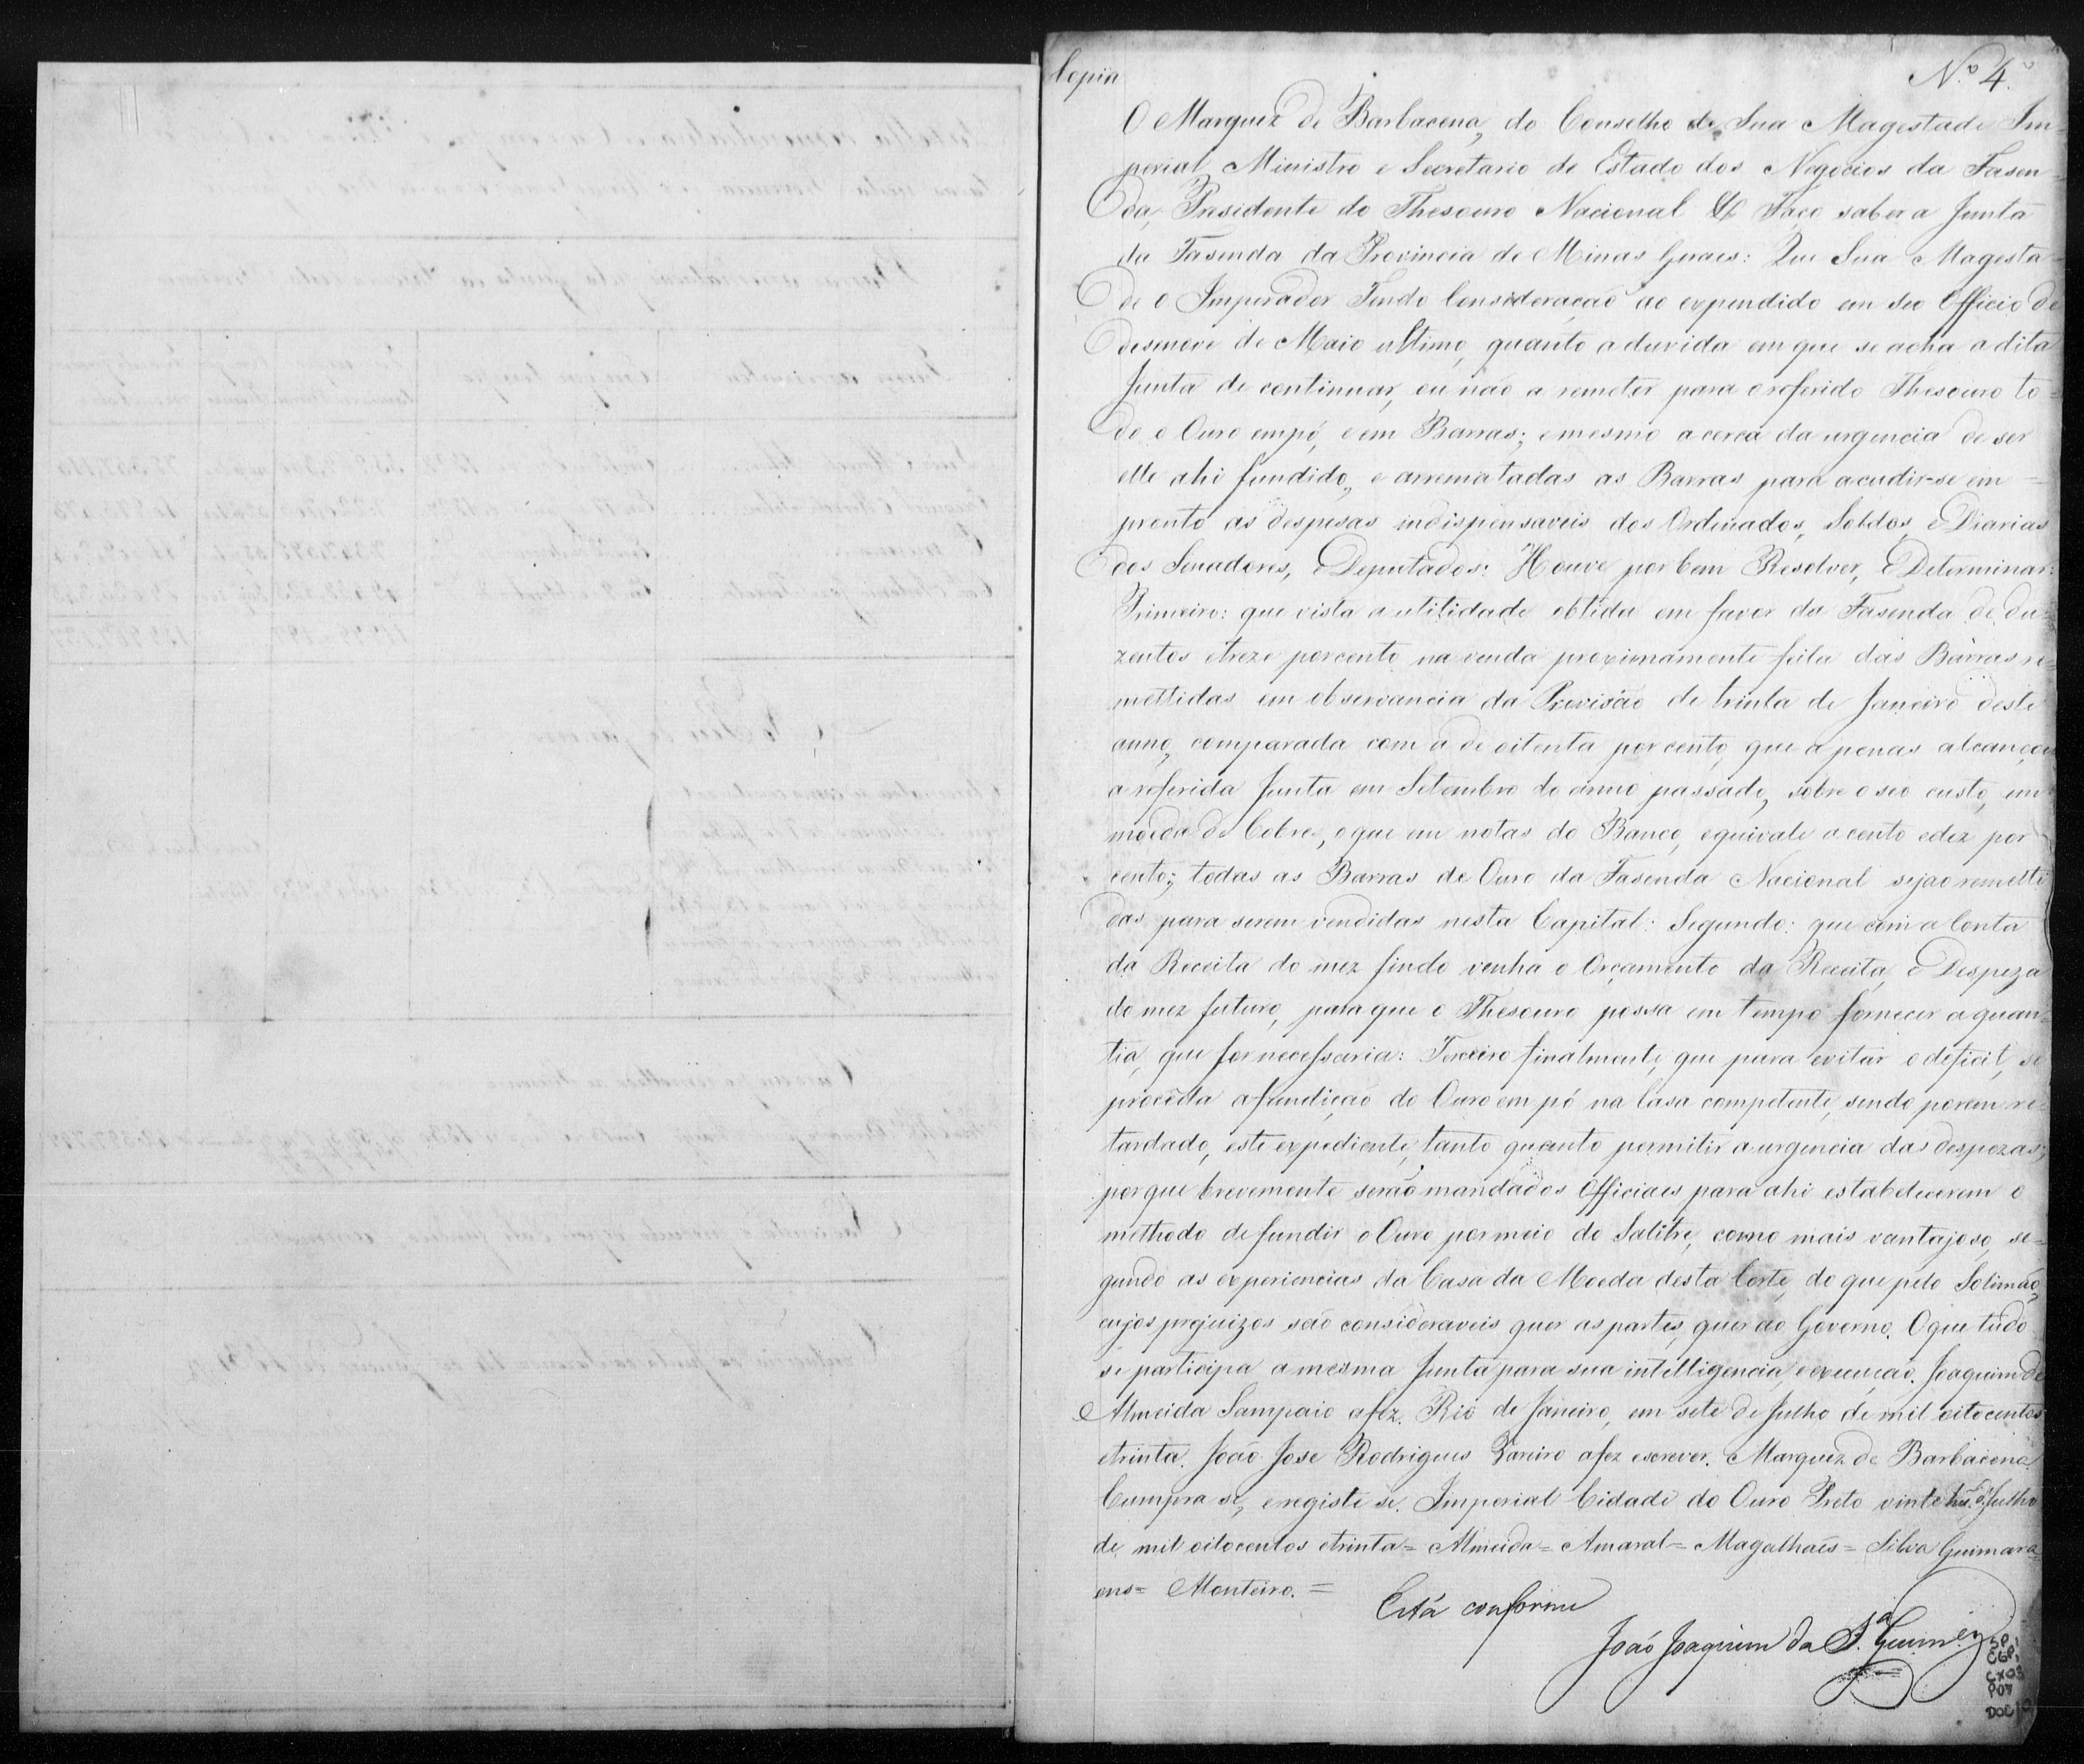 Copia
Nº 4.
O Marquez de Barbacena, do Conselho de Sua Magestade Im=
perial, Ministro e Secretario de Estado dos Negocios da Fasen=
da, Presidente do Thesouro Nacional &c Faço saber a Junta
da Fasenda da Provincia de Minas Geraes: Que Sua Magesta=
de o Imperador Tendo Consideração ao expendido em seo Officio de
desenove de Maio ultimo, quanto a duvida em que se acha a dita
Junta de continuar, ou não a remeter para o referido Thesouro to=
do o Ouro em pó, e em Barras; e mesmo acerca da urgencia de ser
elle ahi fundido, e arrematadas as Barras para acudir-se em=
pronto as despesas indispensaveis dos Ordenados, Soldos, e Diarias
dos Senadores, e Deputados: Houve por bem Resolver, e Determinar:
Primeiro: que vista a utilidade obtida em favor da Fasenda de du=
zentos e treze por cento na venda proximamente feita das Barras re=
mettidas em observancia da Provisão de trinta de Janeiro deste
anno, comparada com a de oitenta por cento, que apenas alcançou
a referida Junta em Setembro do anno passado, sobre o seo custo, em
moeda de Cobre, o que em notas do Banco, equivale a cento e dez por
cento; todas as Barras de Ouro da Fasenda Nacional sejão remetti
das para serem vendidas nesta Capital: Segundo: que com a Conta
da Receita do mez findo venha o Orçamento da Receita, e Despeza
do mez futuro, para que o Thesouro possa em tempo fornecer a quan=
tia, que for necessaria: Terceiro finalmente, que para evitar o deficit, se
proceda a fundição do Ouro em pó na Casa competente, sendo porem re=
tardado, este expediente, tanto quanto permitir a urgencia das despezas;
porque brevemente serão mandados Officiaes para ahi estabelecerem o
methodo de fundir o Ouro por meio do Salitre, como mais vantajoso, se=
gundo as experiencias da Casa da Moeda desta Corte, do que pelo Solimão,
cujos prejuizos são consideraveis quer as partes, quer ao Governo. O que tudo
se participa a mesma Junta para sua intelligencia, e execução. Joaquim de
Almeida Sampaio a fez. Rio de Janeiro, em sete de Julho de mil oitocentos
e trinta. João Jose Rodrigues Vareiro a fez escrever. Marquez de Barbacena.
Cumpra se, e registe se. Imperial Cidade do Ouro Preto vinte hũ de Julho
de mil oitocentos e trinta= Almeida= Amaral= Magalhaẽs= Silva Guimara=
ens= Monteiro.=
Está conforme
João Joaquim da S.ª Guim.es
SP
CGP1
CX03
P07
DOC